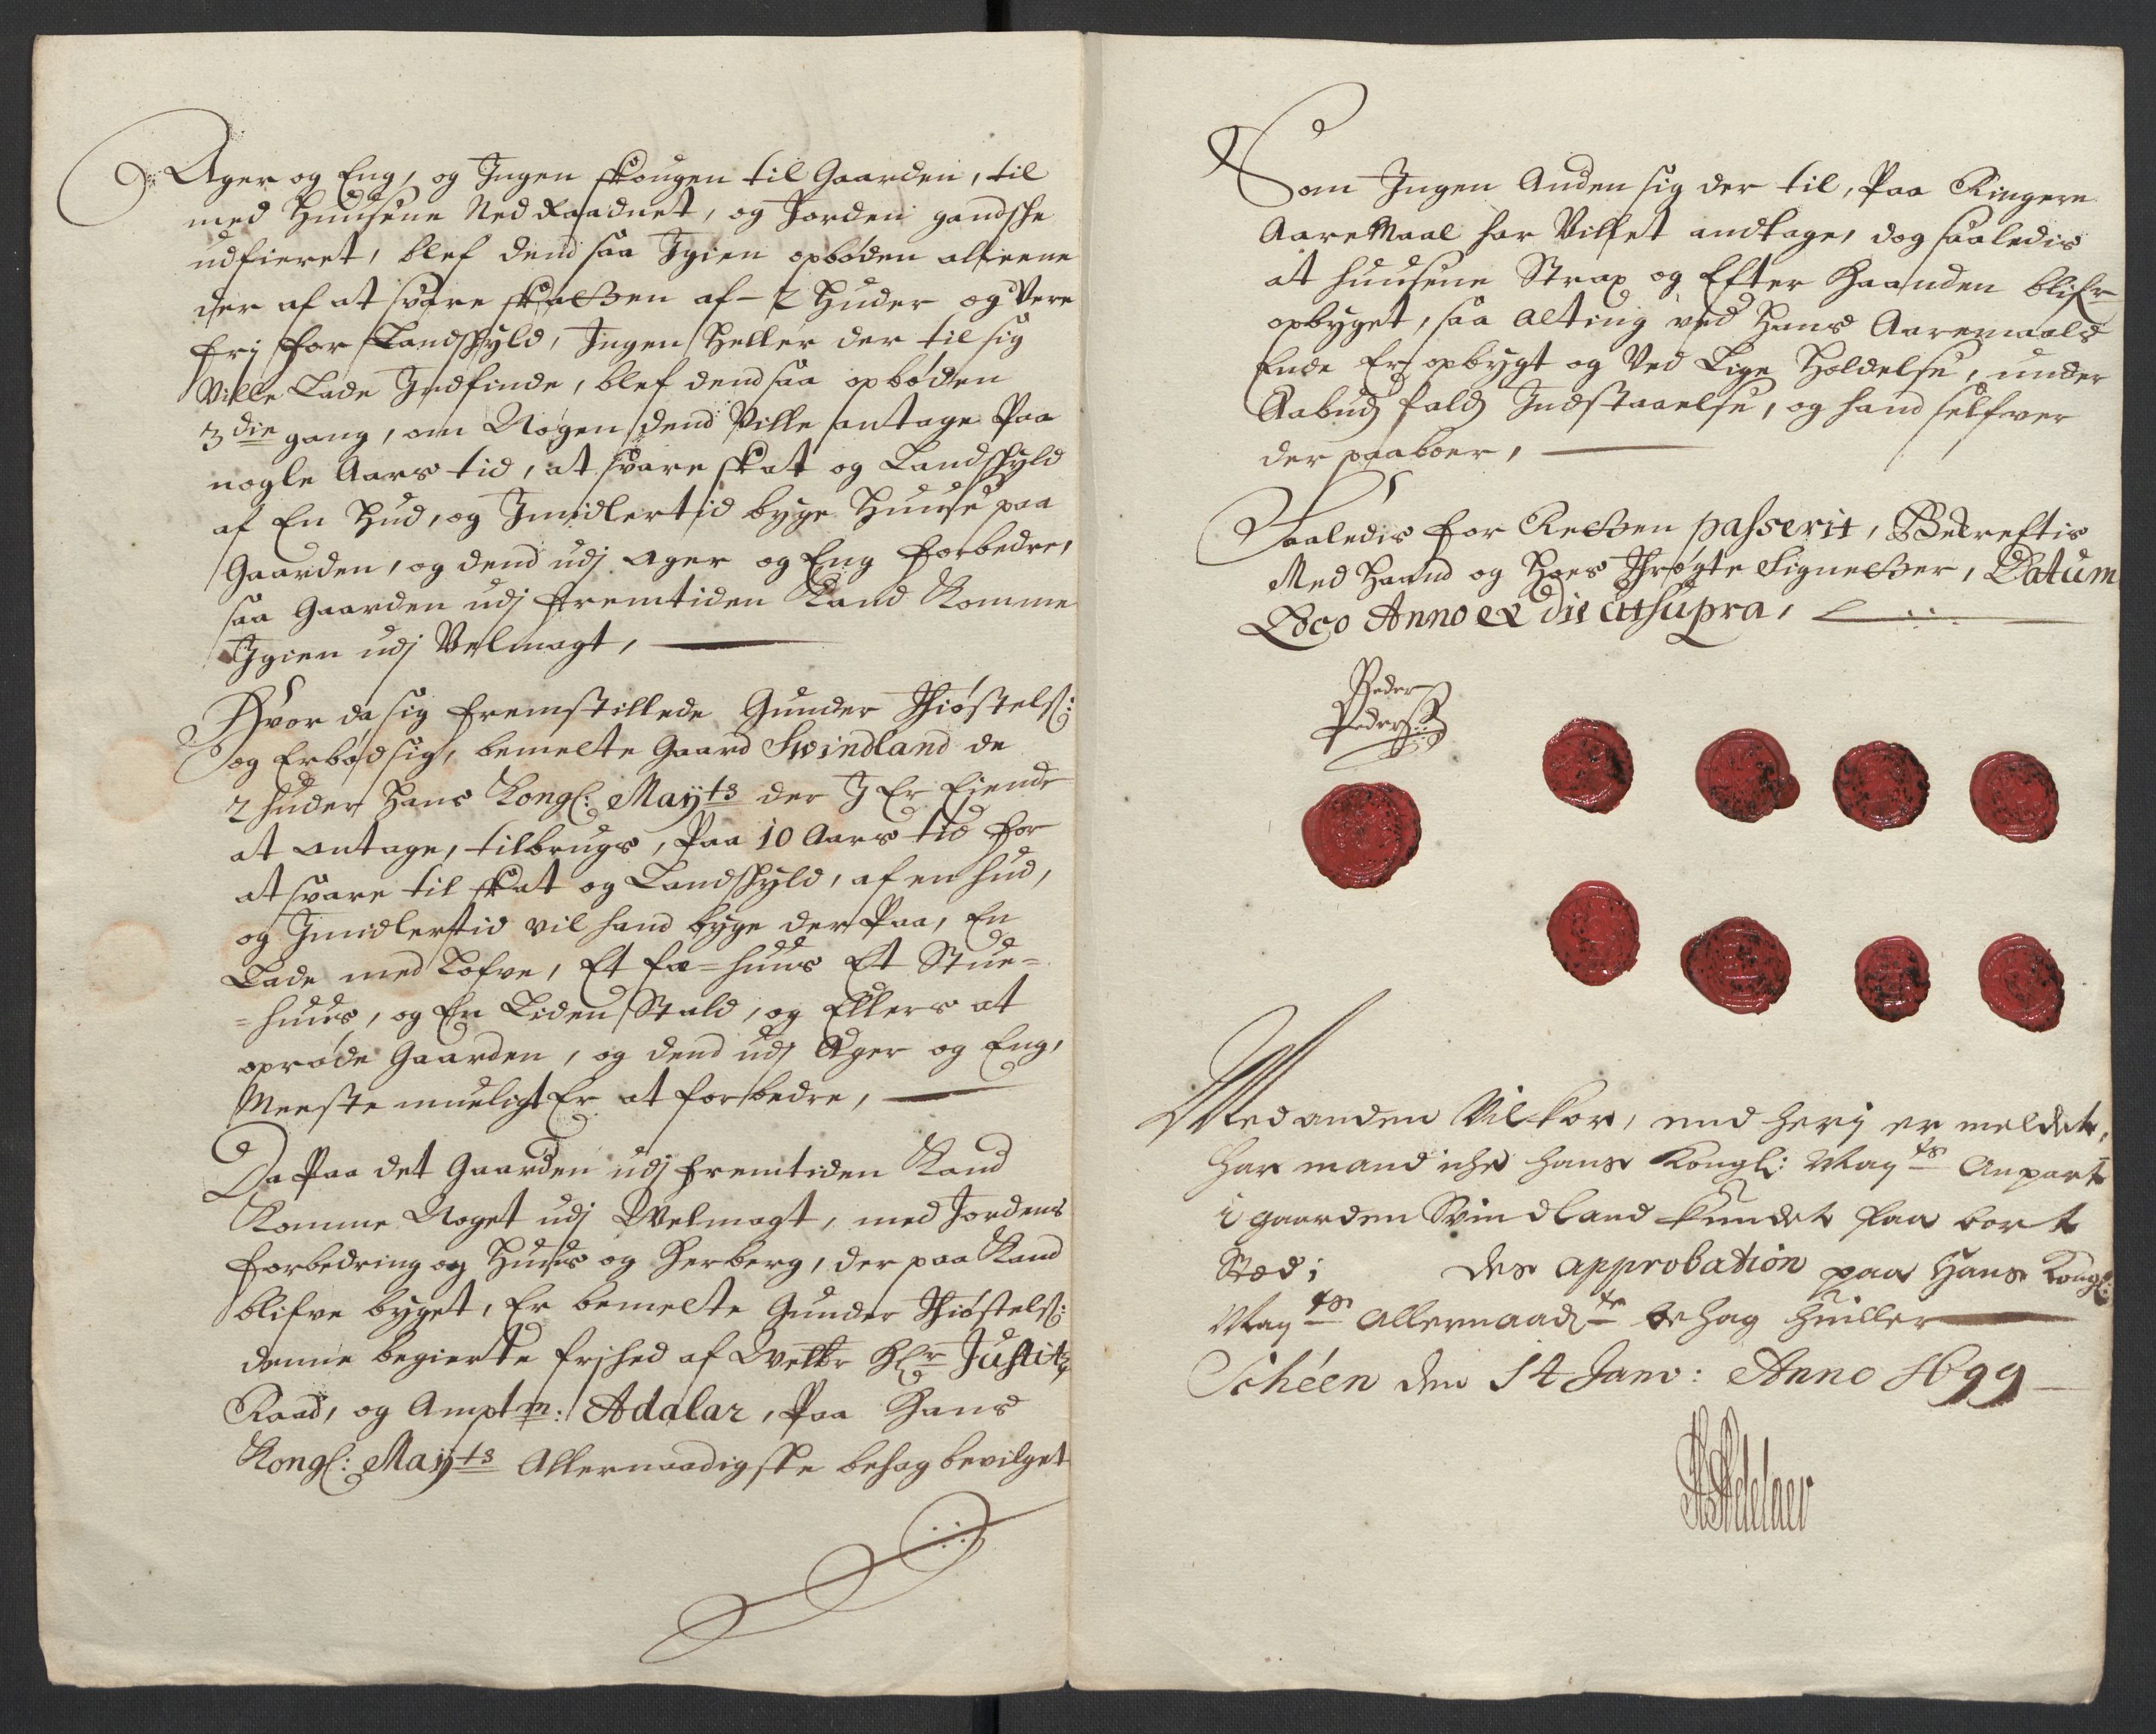 Ager og Eng, og Ingen skougen til Gaarden, til
med Huusene Ned Raadnet, og Jorden gandske
udfieret, blef dend saa Igien opböden alleene
der af at svare skatten af - 2 Huder og Vere
fri for Landskyld, Ingen Heller der til sig
Ville Lade Indfinde, blef dend saa opböden
3die gang, om Nogen dend Ville antage Paa
nogle Aars tid, at svare skat og Landskyld
af En Hud, og Imidlertid byge Huuse paa
Gaarden, og dend udj Ager og Eng forbedre,
saa Gaarden udj fremtiden Kand Komme
Igien udj Velmagt,
Hvor da sig fremstillede Gunder Thiöstels:
og Erböd sig, bemelte Gaard Swindland de
2 huder Hans Kongl: Mayts der I Er Eiende
at antage, til brugs, Paa 10 Aars tid for
at svare til skat og Landskyld, af en hud,
og Imidlertid vil hand byge der Paa, En
Lade med Lofve, Et fæ=huus Et Stue=
=huus, og En Liden Stald, og Ellers at
opröde Gaarden, og dend udj Ager og Eng,
Meeste mueligt Er at forbedre,
Da Paa det Gaarden udj fremtiden Kand
Komme Noget udj Welmagt, med Jordens
forbedring og Huus og Herberg, der paa Kand
blifve byget, Er bemelte Gunder Thiöstels:
denne begierte frihed af Welbr Hr Justitz
Raad, og Amptm: Adalar, Paa Hans
Kongl: Mayts Allernaadigste behag bevilget
Som Ingen Anden sig der til, Paa Ringere
Aaremaal har Villet andtage, dog saaledis
at huusene Strax og Efter Haanden blifr
opbyget, saa alting ved Hans Aaremaals
Ende Er opbygt og Ved Lige Holdelse, under
Aabud falds Indstaaelse, og hand self ver
der paaboer,
Saaledis for Retten passerit, Bekreftis
Med Haand og Hoes Thrögte Signetter, Datum
Loco Anno et die ut supra,
Peder
Peders
Med anden Vilkor, end herj er meldet,
har mand iche hans Kongl: Mayts Anpart
i gaarden Svindland kundet faa bort
Sted; des approbation paa Hans Kongl:
Mayts Allernaadte behag huiller
Schéen den 14 Janv: Anno 1699
Adelaer